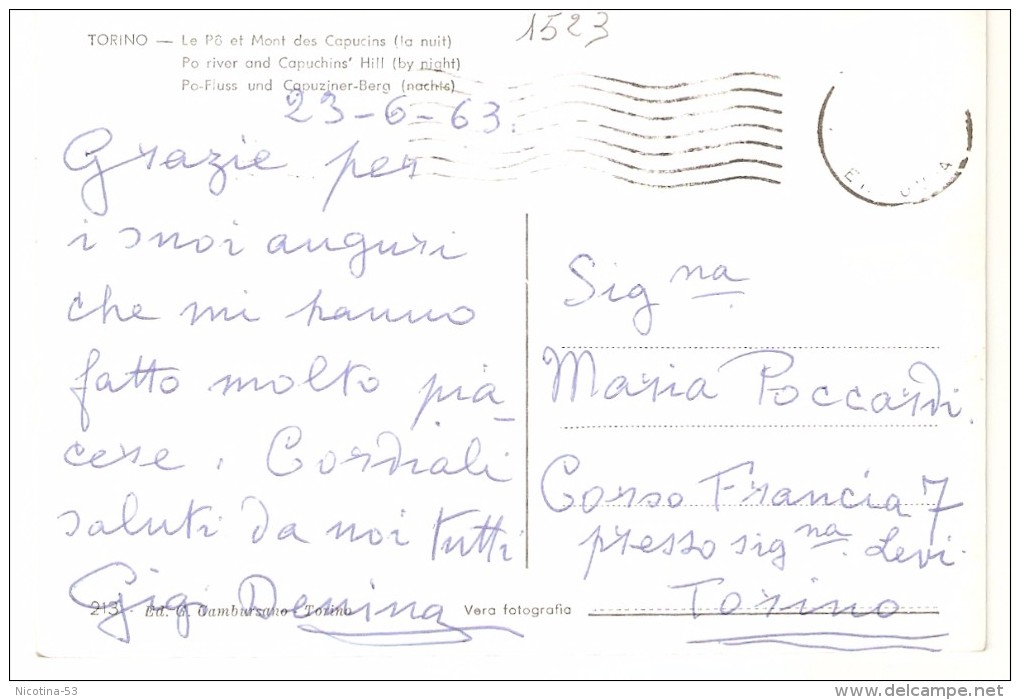 1523
TORINO — Le Pô et Mont des Capucins (la nuit)
Po river and Capuchins' Hill (by night)
Po-Fluss und Capuziner-Berg (nachts)
23-6-63.
Grazie per
i suoi auguri
che mi hanno
fatto molto pia-
cere. Cordiali
saluti da noi tutti
Gigi Denina
Sig na
Maria Poccardi.
Corso Francia 7
presso sig na. Levi.
Torino
213 - Ed. G. Cambursano - Torino
Vera fotografia
Nicotina-53
delcampe.net